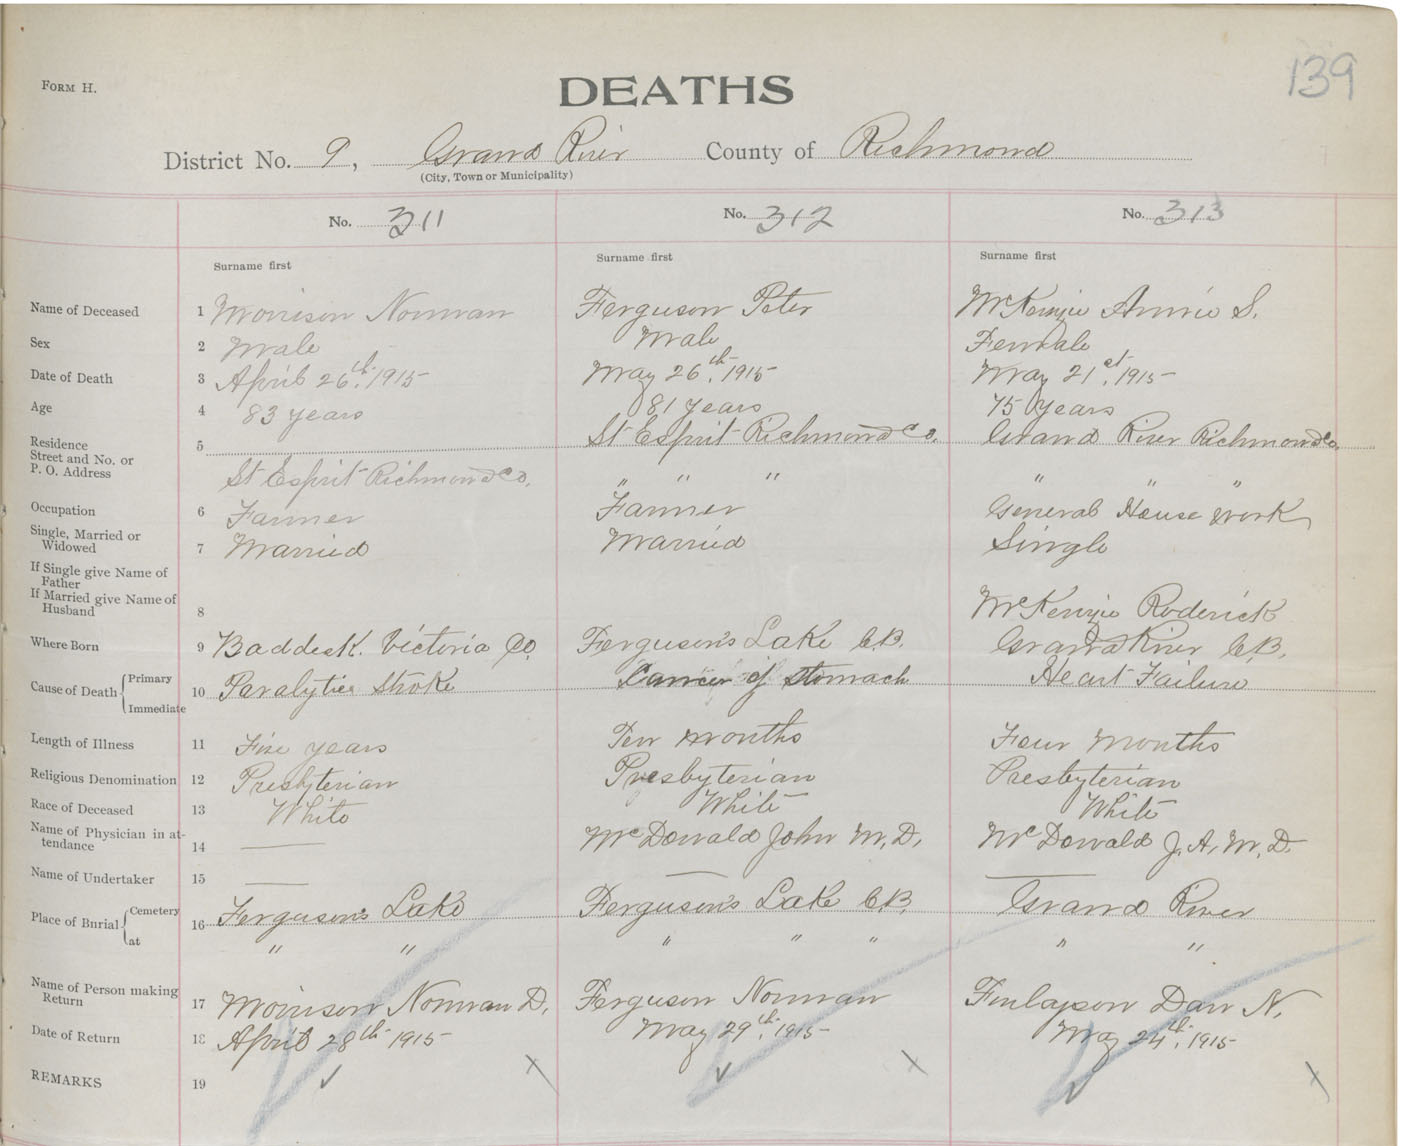 139
FORM H.
DEATHS
District No. 9, Grand River County of Richmond
(City, Town or Municipality)
No. 311 No. 312 No. 313
Surname first Surname first Surname first
Name of Deceased 1 Morrison Norman Ferguson Peter McKenzie Annie S.
Sex 2 Male Male Female
Date of Death 3 April 26th, 1915 May 26th, 1915 May 21st, 1915
Age 4 83 years 81 years 75 years
Residence 5 St Esprit Richmond Co. Grand River Richmond Co.
Street and No. or
P. O. Address St Esprit Richmond Co. " " " " " "
Occupation 6 Farmer Farmer General House work
Single, Married or
Widowed 7 Married Married Single
If Single give Name of
Father
If Married give Name of
Husband 8 McKenzie Roderick
Where Born 9 Baddeck. Victoria Co. Ferguson's Lake C.B. Grand River C.B.
Cause of Death Primary
Immediate 10 Paralytic Stroke Cancer of Stomach Heart Failure
Length of Illness 11 Five years Ten months Four Months
Religious Denomination 12 Presbyterian Presbyterian Presbyterian
Race of Deceased 13 White White White
Name of Physician in at-
tendance 14 — McDonald John M.D. McDonald J. A. M.D.
Name of Undertaker 15 — — —
Place of Burial Cemetery 16 Ferguson's Lake Ferguson's Lake C.B. Grand River
at " " " " " " "
Name of Person making
Return 17 Morrison Norman D. Ferguson Norman Finlayson Dan N.
Date of Return 18 April 28th 1915 May 29th, 1915 May 24th, 1915
REMARKS 19